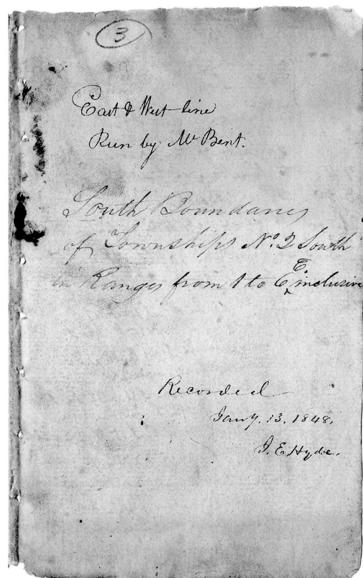 3
East & West line
Run by Mr Bent.
South Boundaries
of Townships No. 2 South
in Ranges from 1 to inclusive
Recorded
Jany. 13, 1848.
J. E. Hyde.